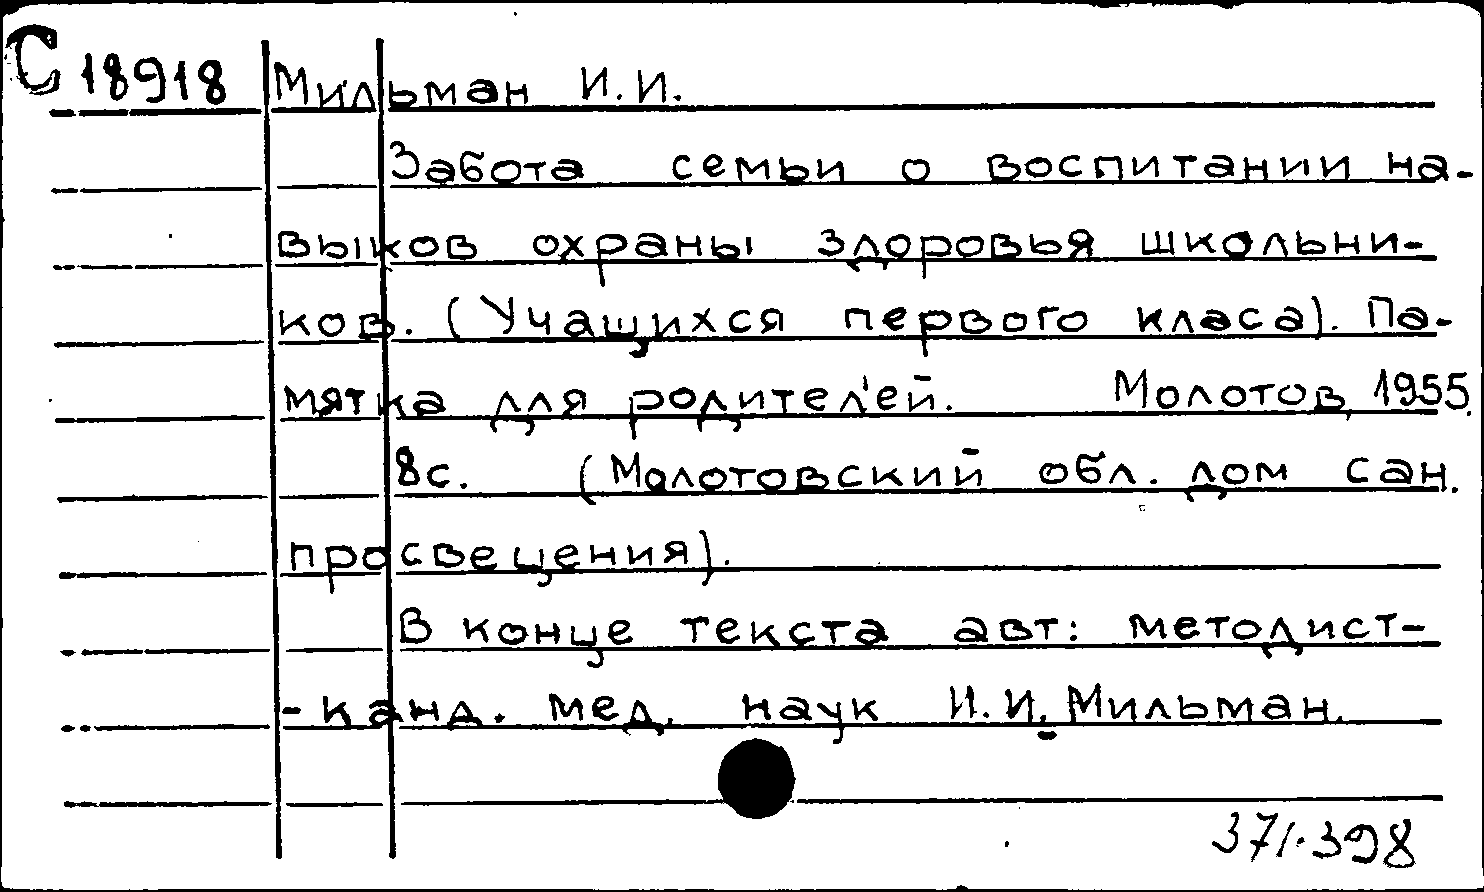 С 18918 Мильман И.И.
Забота семьи о воспитании на-
выков охраны здоровья школьни-
ков. (Учащихся первого класа). Па-
мятка для родителей. Молотов, 1955.
8с. (Молотовский обл. дом сан.
просвещения).
В конце текста авт: методист-
-канд. мед. наук И.И. Мильман.
371.398